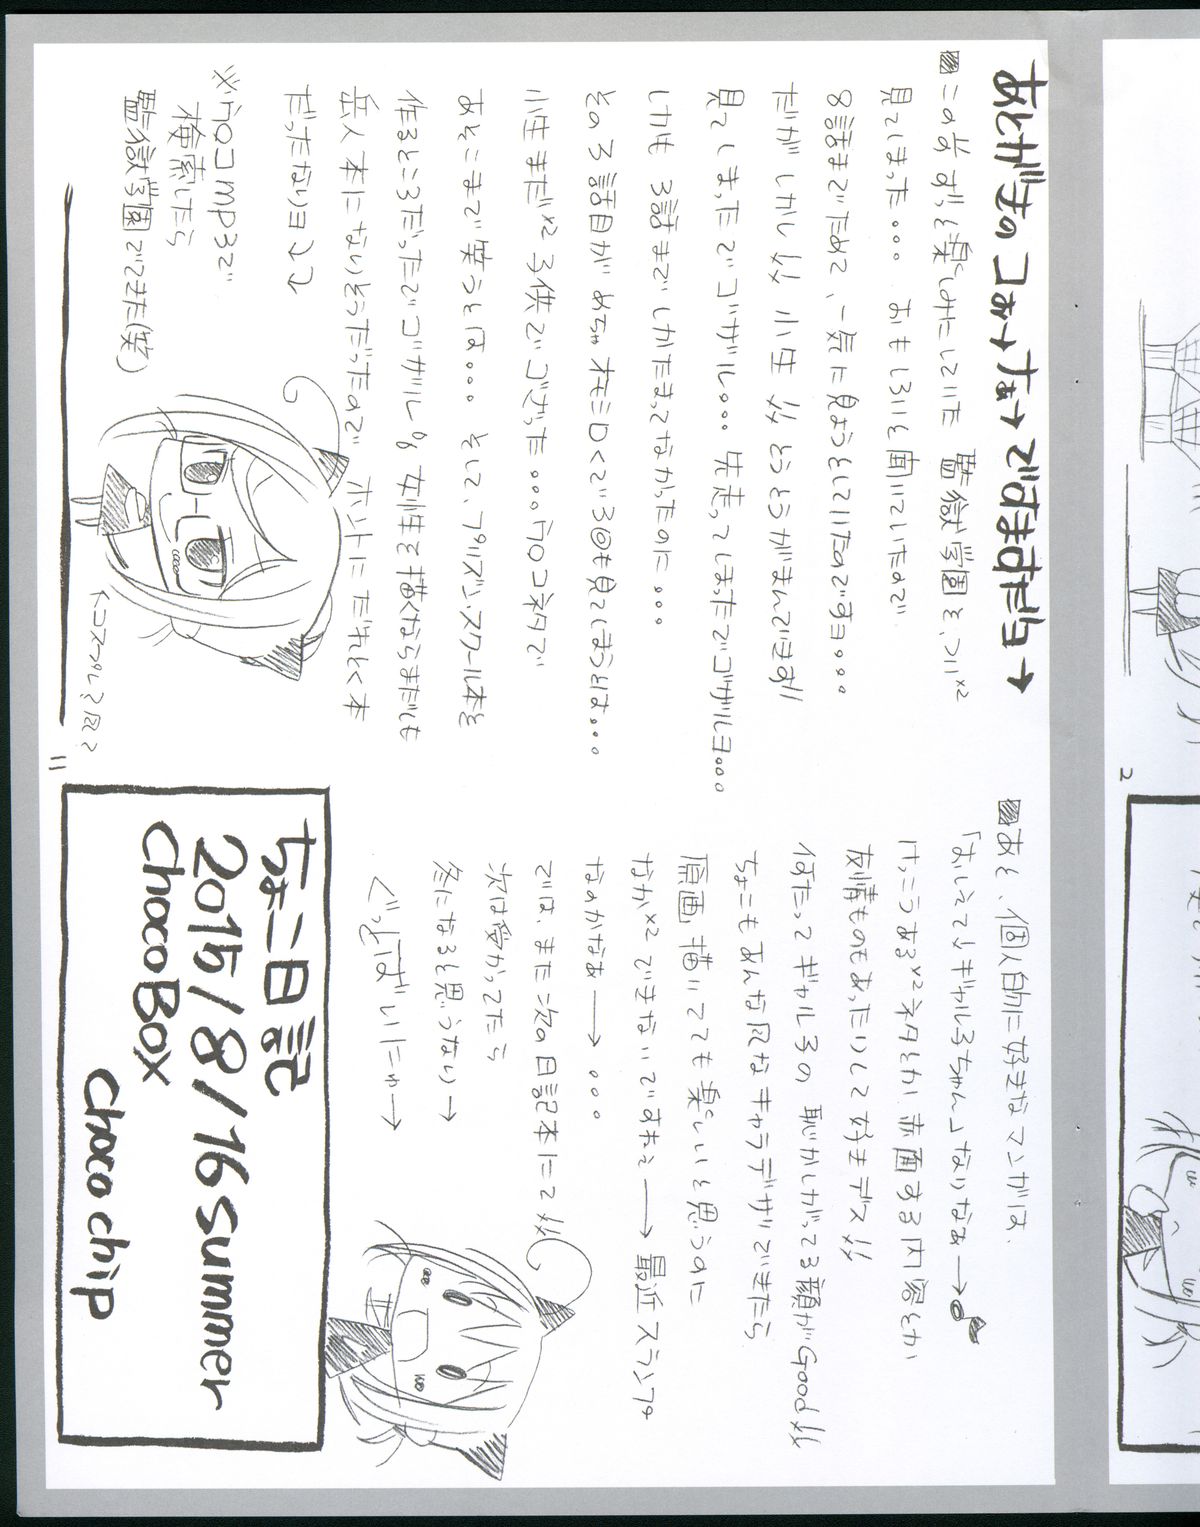 あとがきのコぉ→ナぁ→ではますだら→
■この前ずっと楽しみにしていた 監獄学園を、つい×2
見てしまった。。。 おもしろいと聞いていたので
8話までためて、一気に見ようとしていたのですョ。。。
だが しかし// 小生 // とうとうがまんできず//
見てしまったでゴザルゥ。。。先走ってしまったでゴザルョ。。。
しかも 3話までしかたまってなかったのに。。。
その3話目が めちゃオモシロくて3回も見てしまうとは。。。
小生まだ×2 子供でござった。。。ウ〇コネタで
あそこまで笑うとは。。。 そして、プリズンスクール本を
作るところだったでゴザル 女性を描くならまだしも
岳人本に なりそうだったので ホントにだれとく本
だったなりョ↓↓
※ウ〇コmp3で
検索したら
監獄学園でてきた(笑)
11
■あと、個人的に好きなマンガは、
「おしえてギャル子ちゃん」なりなぁ→♪
けっこうある×2ネタとか 赤面する内容とか
友情ものもあったりして好きデス//
何たってギャル子の 恥かしがってる顔がGood//
ちょこもあんな風なキャラデザできたら
原画、描いてても楽しいと思うのに
なか×2できないですねぇ→ 最近スランプ
なのかなぁ→。。。
では、また次の日記本にて//
次は受かってたら
冬になると思うなり→
ぐっばいにゃ→
ちょこ日記
2015/8/16summer
chocoBox
choco chip
2